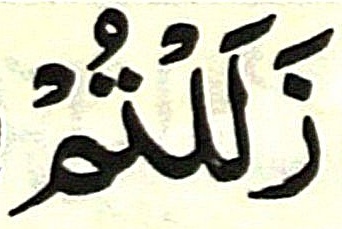 زَلَلْتُمْ